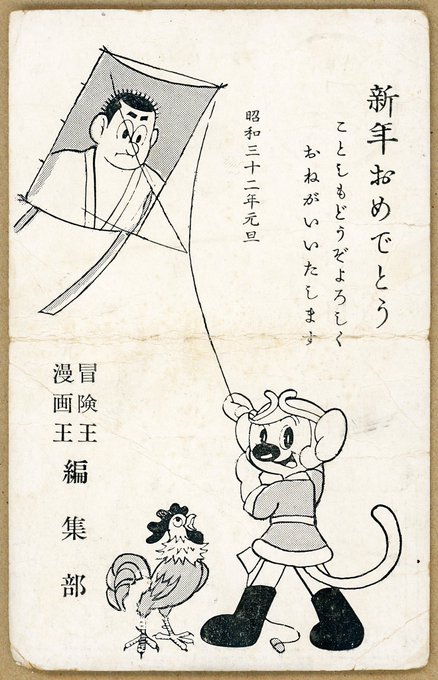 新年おめでとう
ことしもどうぞよろしく
おねがいいたします
昭和三十二年元旦
冒険王
漫画王
編集部